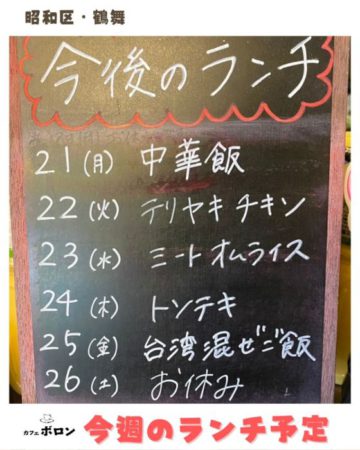 昭和区・鶴舞
今後のランチ
21(月) 中華飯
22(火) テリヤキチキン
23(水) ミートオムライス
24(木) トンテキ
25(金) 台湾混ぜご飯
26(土) お休み
カフェ ボロン 今週のランチ予定